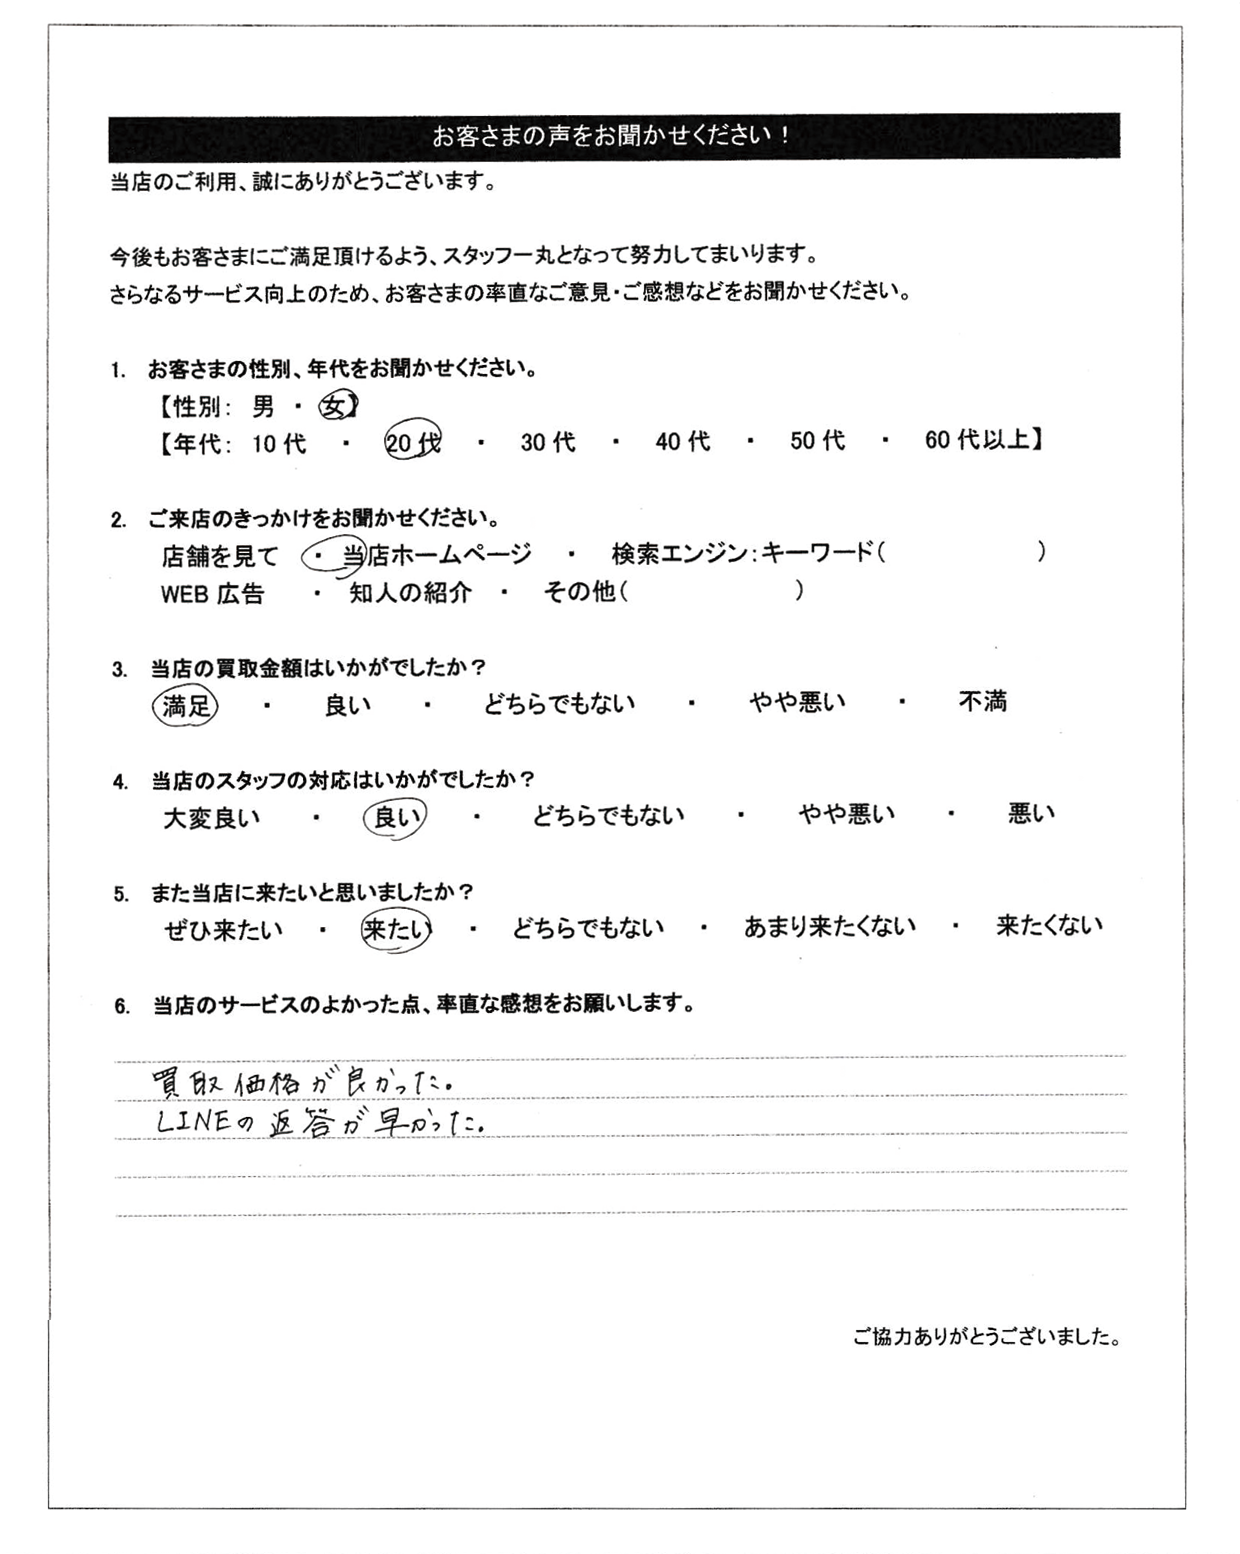 お客さまの声をお聞かせください！
当店のご利用、誠にありがとうございます。
今後もお客さまにご満足頂けるよう、スタッフ一丸となって努力してまいります。
さらなるサービス向上のため、お客さまの率直なご意見・ご感想などをお聞かせください。
1. お客さまの性別、年代をお聞かせください。
【性別： 男 ・ 女】
【年代： 10代 ・ 20代 ・ 30代 ・ 40代 ・ 50代 ・ 60代以上】
2. ご来店のきっかけをお聞かせください。
店舗を見て ・ 当店ホームページ ・ 検索エンジン：キーワード（ ）
WEB広告 ・ 知人の紹介 ・ その他（ ）
3. 当店の買取金額はいかがでしたか？
満足 ・ 良い ・ どちらでもない ・ やや悪い ・ 不満
4. 当店のスタッフの対応はいかがでしたか？
大変良い ・ 良い ・ どちらでもない ・ やや悪い ・ 悪い
5. また当店に来たいと思いましたか？
ぜひ来たい ・ 来たい ・ どちらでもない ・ あまり来たくない ・ 来たくない
6. 当店のサービスのよかった点、率直な感想をお願いします。
買取価格が良かった。
LINEの返答が早かった。
ご協力ありがとうございました。